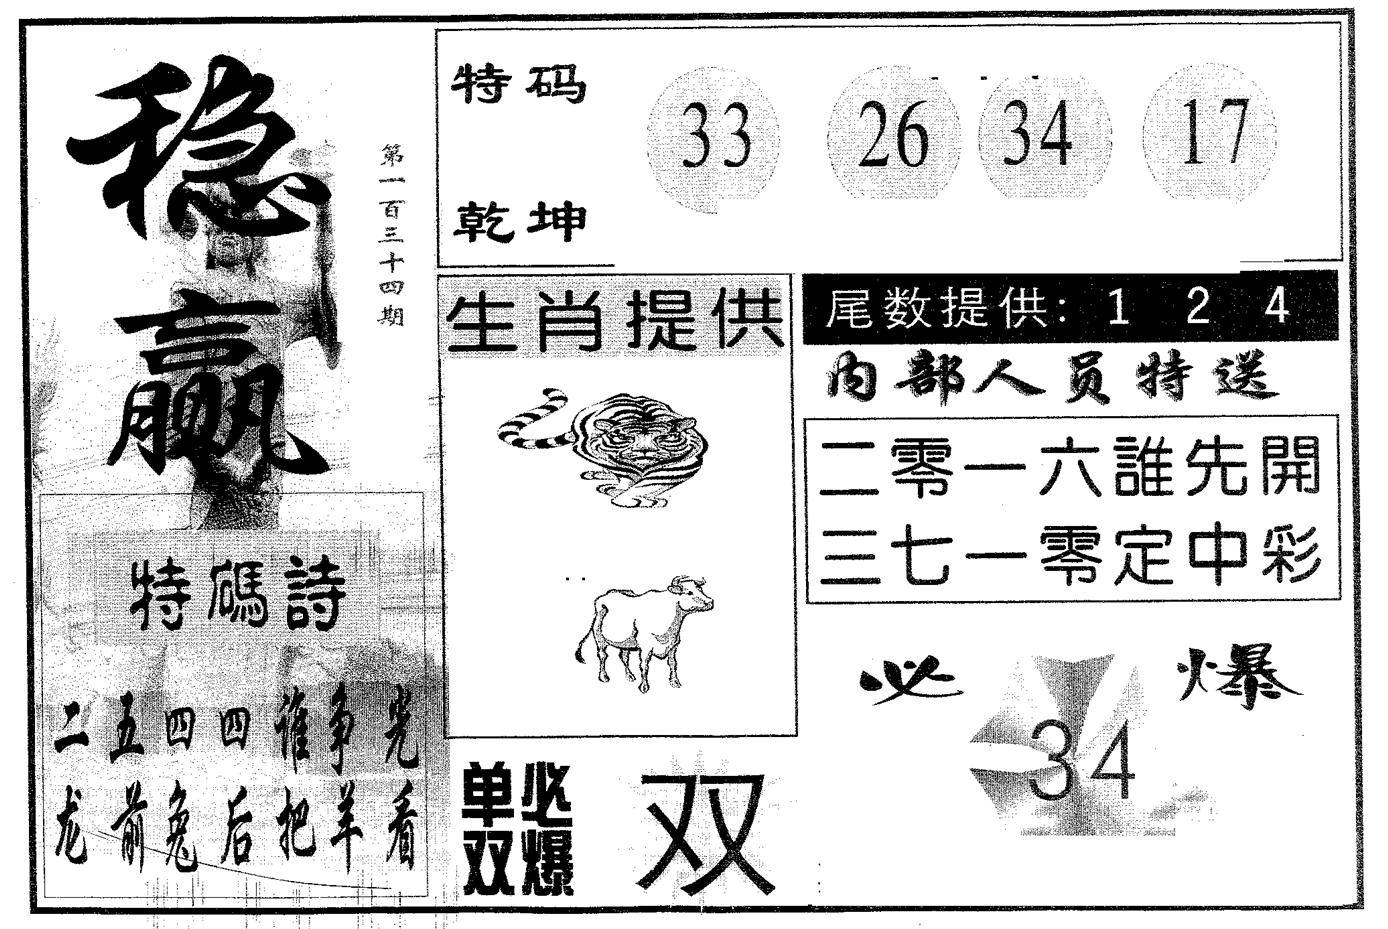 稳赢
第一百三十四期
特码
乾坤
33 26 34 17
生肖提供
尾数提供: 1 2 4
内部人员特送
二零一六誰先開
三七一零定中彩
特碼詩
二五四四谁争光
龙前兔后把羊看
单双必爆
双
必爆
34